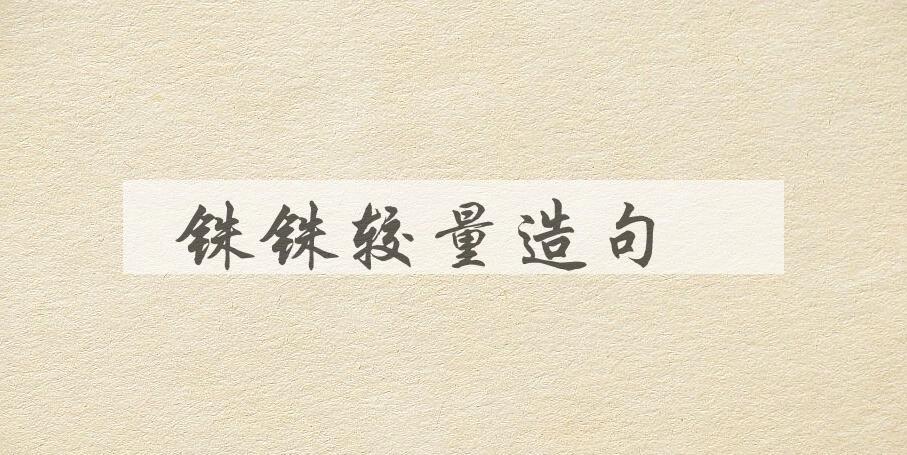 铢铢较量造句